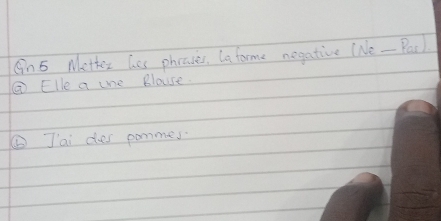 Qn5 Mettez les phrases, la forme negative (Ne — Pas)
(a) Elle a une Blouse.
(b) J'ai des pommes.